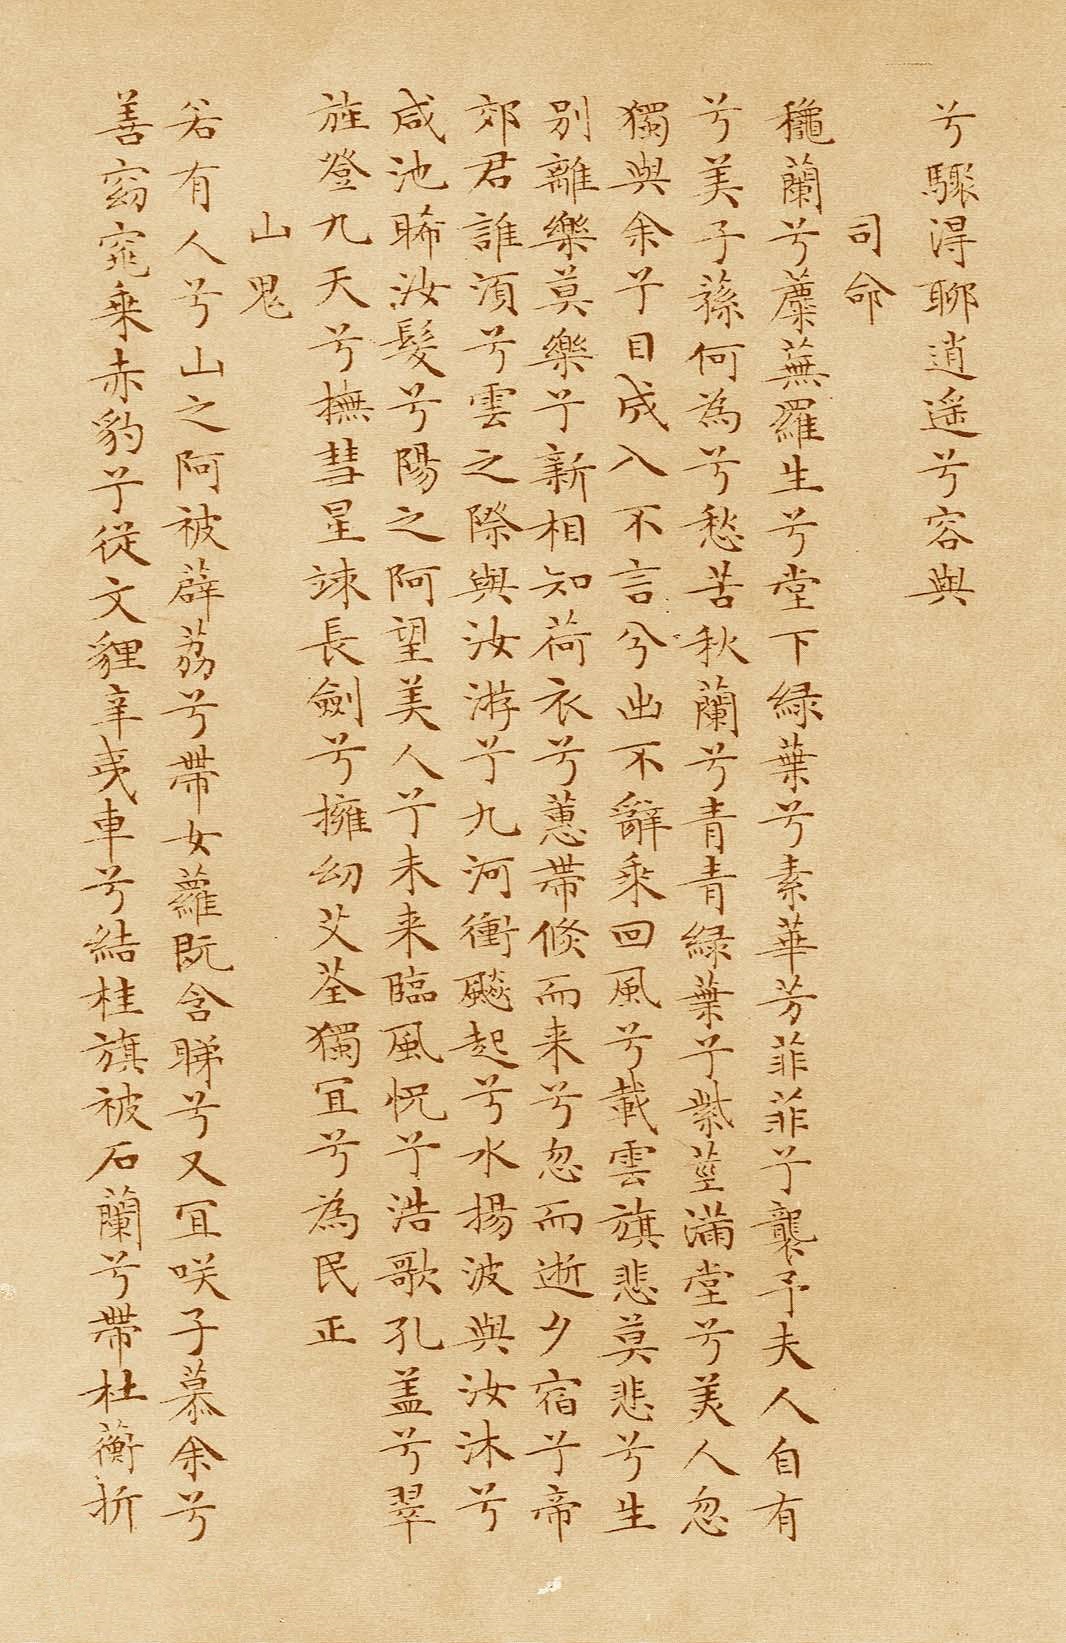 兮驟得聊逍遥兮容與
司命
穐蘭兮蘪蕪羅生兮堂下緑葉兮素華芳菲菲兮襲予夫人自有
兮美子蓀何為兮愁苦秋蘭兮青青緑葉兮紫莖滿堂兮美人忽
獨與余兮目成入不言兮出不辭乘回風兮載雲旗悲莫悲兮生
別離樂莫樂兮新相知荷衣兮蕙帶倏而来兮忽而逝夕宿兮帝
郊君誰須兮雲之際與汝游兮九河衝飈起兮水揚波與汝沐兮
咸池晞汝髮兮陽之阿望美人兮未来臨風怳兮浩歌孔盖兮翠
旌登九天兮撫彗星竦長劍兮擁幼艾荃獨冝兮為民正
山鬼
若有人兮山之阿被薜荔兮帶女蘿既含睇兮又冝咲子慕余兮
善窈窕乘赤豹兮從文貍辛夷車兮結桂旗被石蘭兮帶杜蘅折